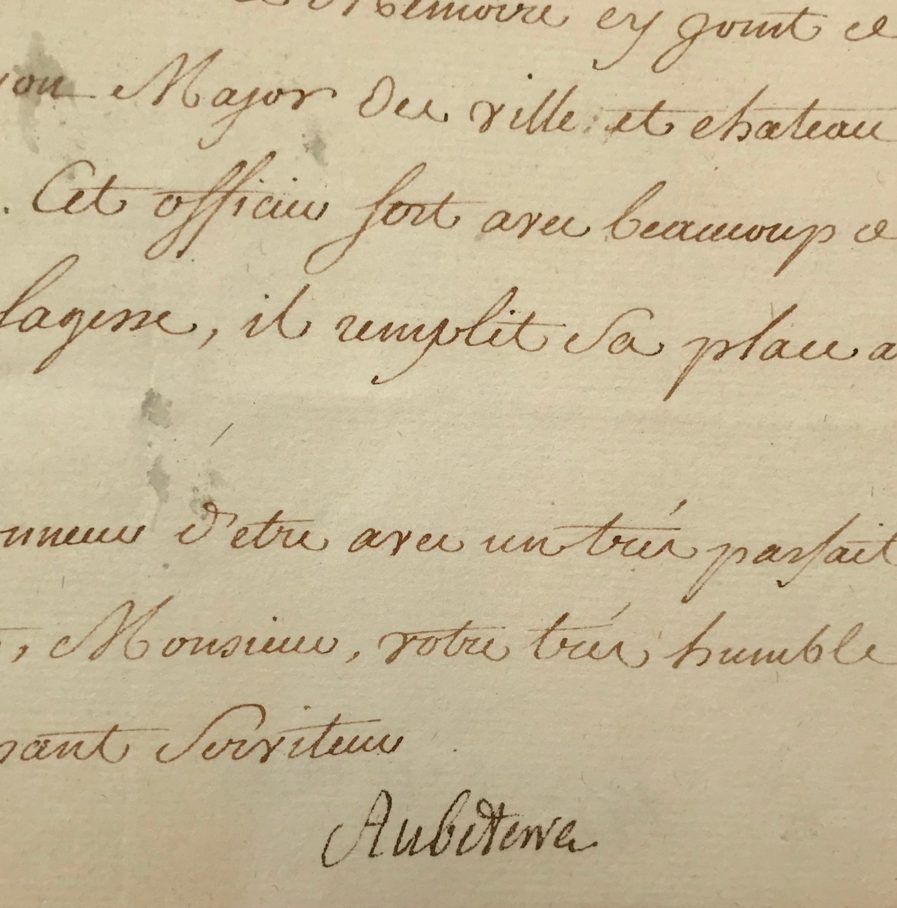 Mémoire cy joint de
yon Major des ville et chateau
. Cet officier sert avec beaucoup de
sagesse, il remplit sa place a
onneur d'etre avec un trés parfait
, Monsieur, votre trés humble
sant Serviteur
Aubeterre